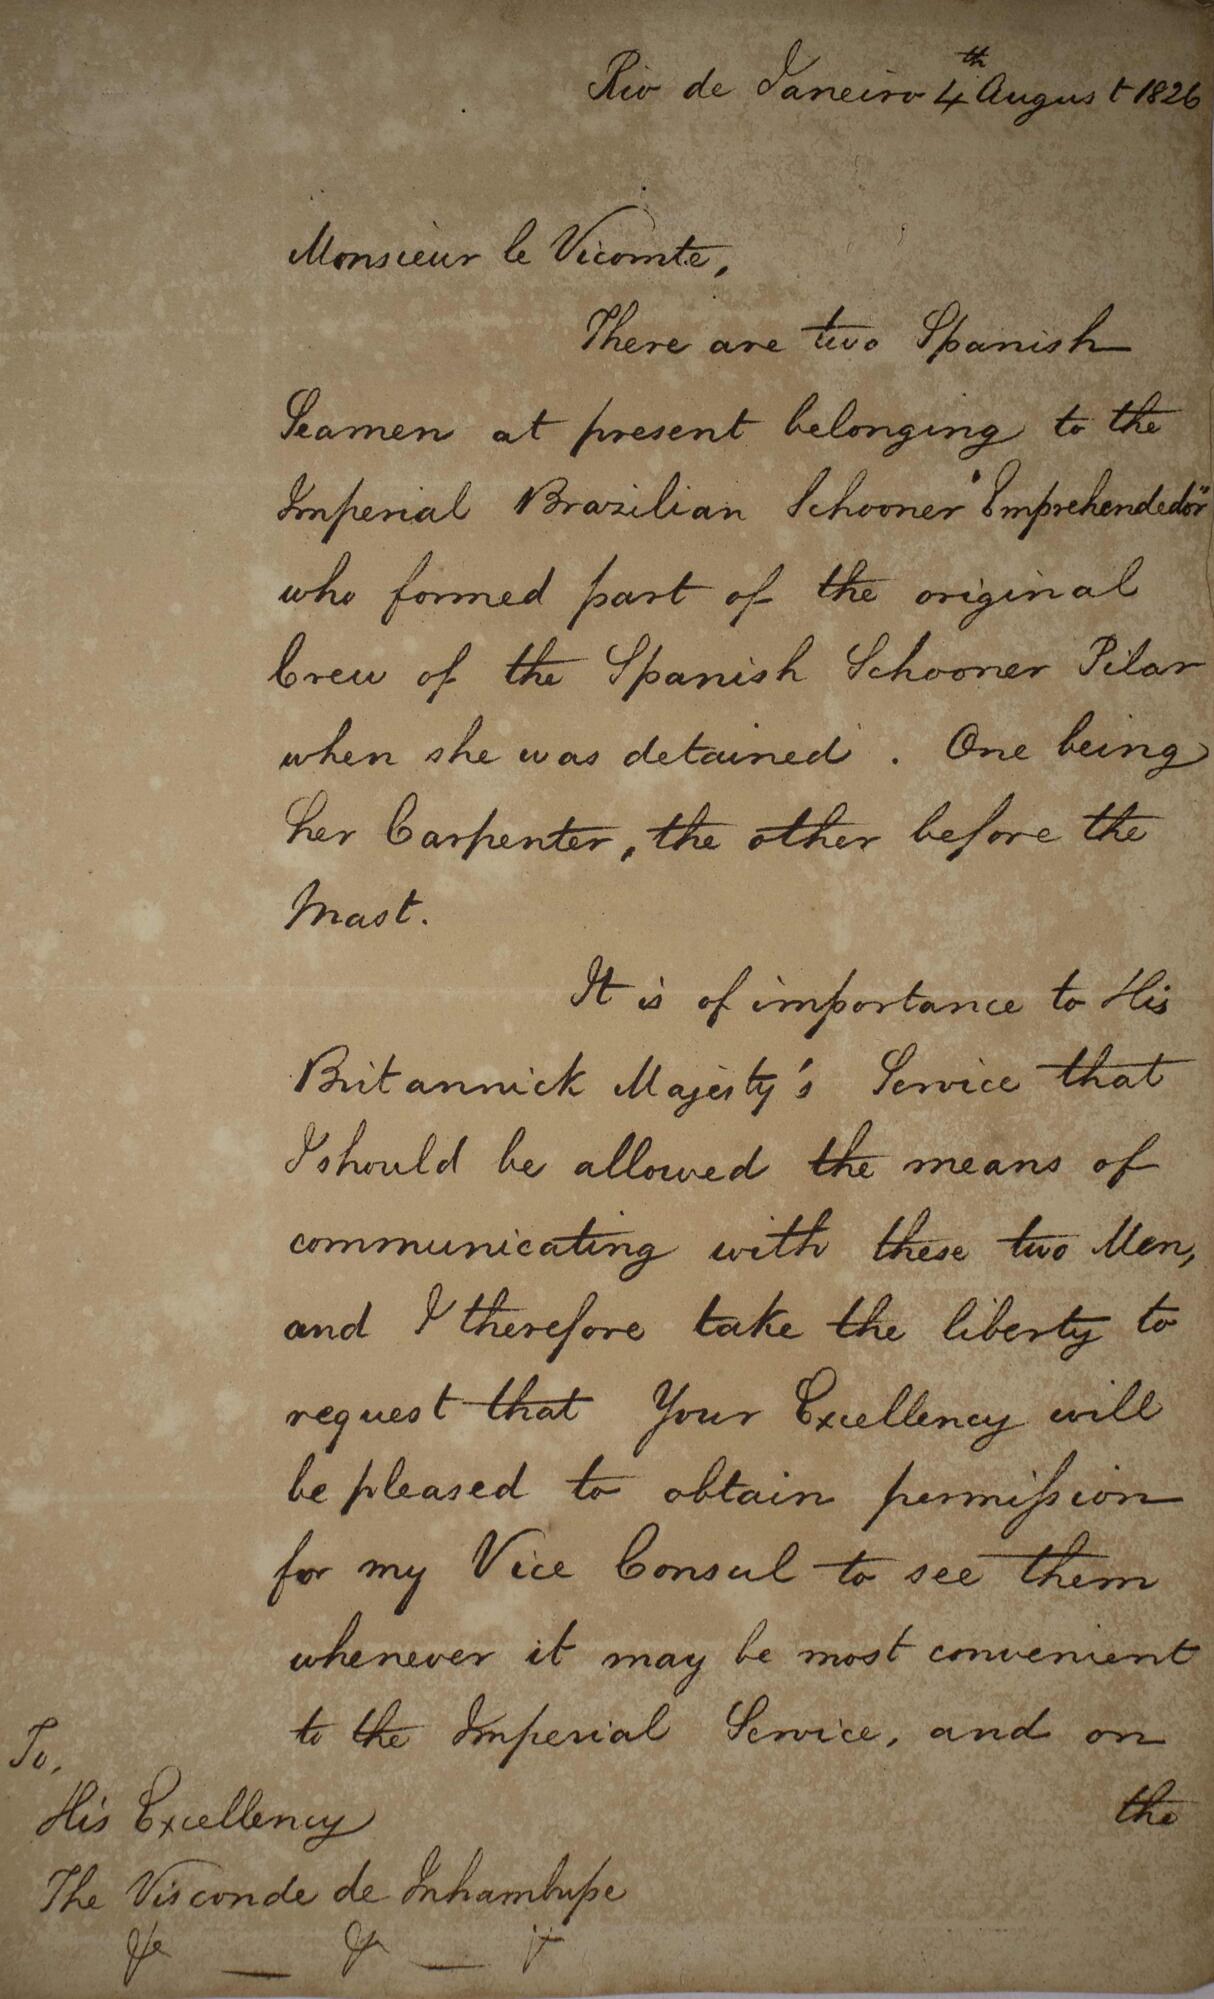 Rio de Janeiro 4th August 1826
Monsieur le Vicomte,
There are two Spanish
Seamen at present belonging to the
Imperial Brazilian Schooner "Emprehendedor"
who formed part of the original
Crew of the Spanish Schooner Pilar
when she was detained. One being
her Carpenter, the other before the
Mast.
It is of importance to His
Britannick Majesty's Service that
I should be allowed the means of
communicating with these two Men,
and I therefore take the liberty to
request that Your Excellency will
be pleased to obtain permission
for my Vice Consul to see them
whenever it may be most convenient
to the Imperial Service, and on
the
To,
His Excellency
The Visconde de Inhambupe
&c — &c — &c